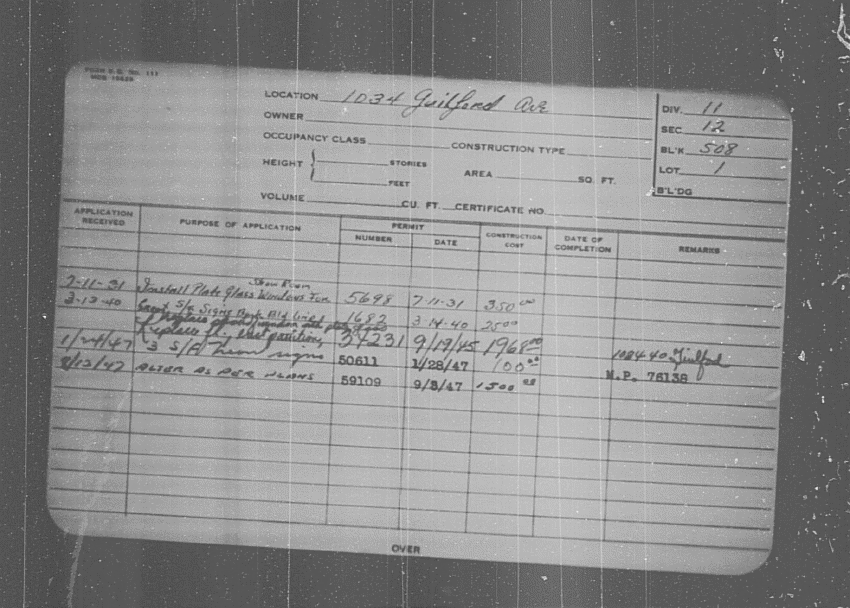 FORM B.G. No. 111
LOCATION 1034 Guilford Ave
DIV. 11
OWNER
SEC. 12
OCCUPANCY CLASS CONSTRUCTION TYPE
BL'K 508
HEIGHT STORIES
FEET
AREA SQ. FT.
LOT 1
B'L'DG
VOLUME CU. FT. CERTIFICATE NO.
APPLICATION RECEIVED PURPOSE OF APPLICATION PERMIT NUMBER DATE CONSTRUCTION COST DATE OF COMPLETION REMARKS
Show Room
7-11-31 Install Plate Glass Windows For 5698 7-11-31 350 00
3-13-40 S/F Signs 1682 3-14-40 25 00
replace
replace partition, 34231 9/19/45 1968 00
1/24/47 3 S/F neon signs 50611 1/28/47 100 00 1024-40 Guilford
8/13/47 ALTER AS PER PLANS 59109 9/8/47 1500 00 M.P. 76136
OVER